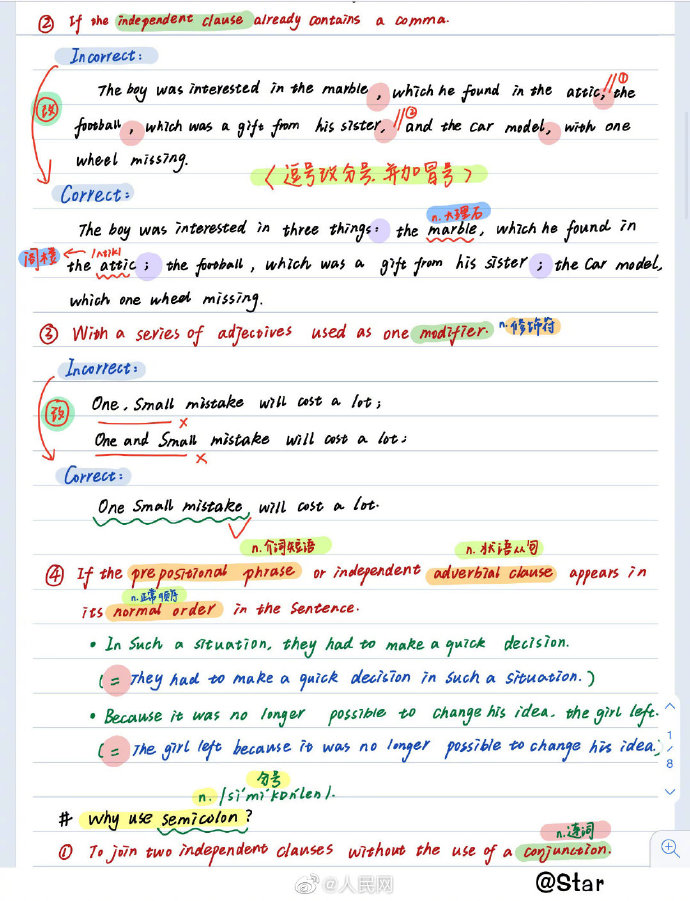 ② If the independent clause already contains a comma.
Incorrect:
The boy was interested in the marble, which he found in the attic, the ①
改
football, which was a gift from his sister, ② and the car model, with one
wheel missing.
〈逗号改分号,并加冒号〉
Correct:
n.大理石
The boy was interested in three things: the marble, which he found in
阁楼
the attic; the football, which was a gift from his sister; the car model,
which one wheel missing.
③ With a series of adjectives used as one modifier. n.修饰符
Incorrect:
One, Small mistake will cost a lot; ×
改
One and Small mistake will cost a lot; ×
Correct:
One Small mistake, will cost a lot.
n.介词短语 n.状语从句
④ If the prepositional phrase or independent adverbial clause appears in
n.正常顺序
its normal order in the sentence.
• In Such a situation, they had to make a quick decision.
( = They had to make a quick decision in such a situation. )
• Because it was no longer possible to change his idea, the girl left.
( = The girl left because it was no longer possible to change his idea.)
1
/
8
分号
n. /siˈmiˈkɒnˈlen/.
# why use semicolon?
n.连词
① To join two independent clauses without the use of a conjunction.
@人民网
@Star